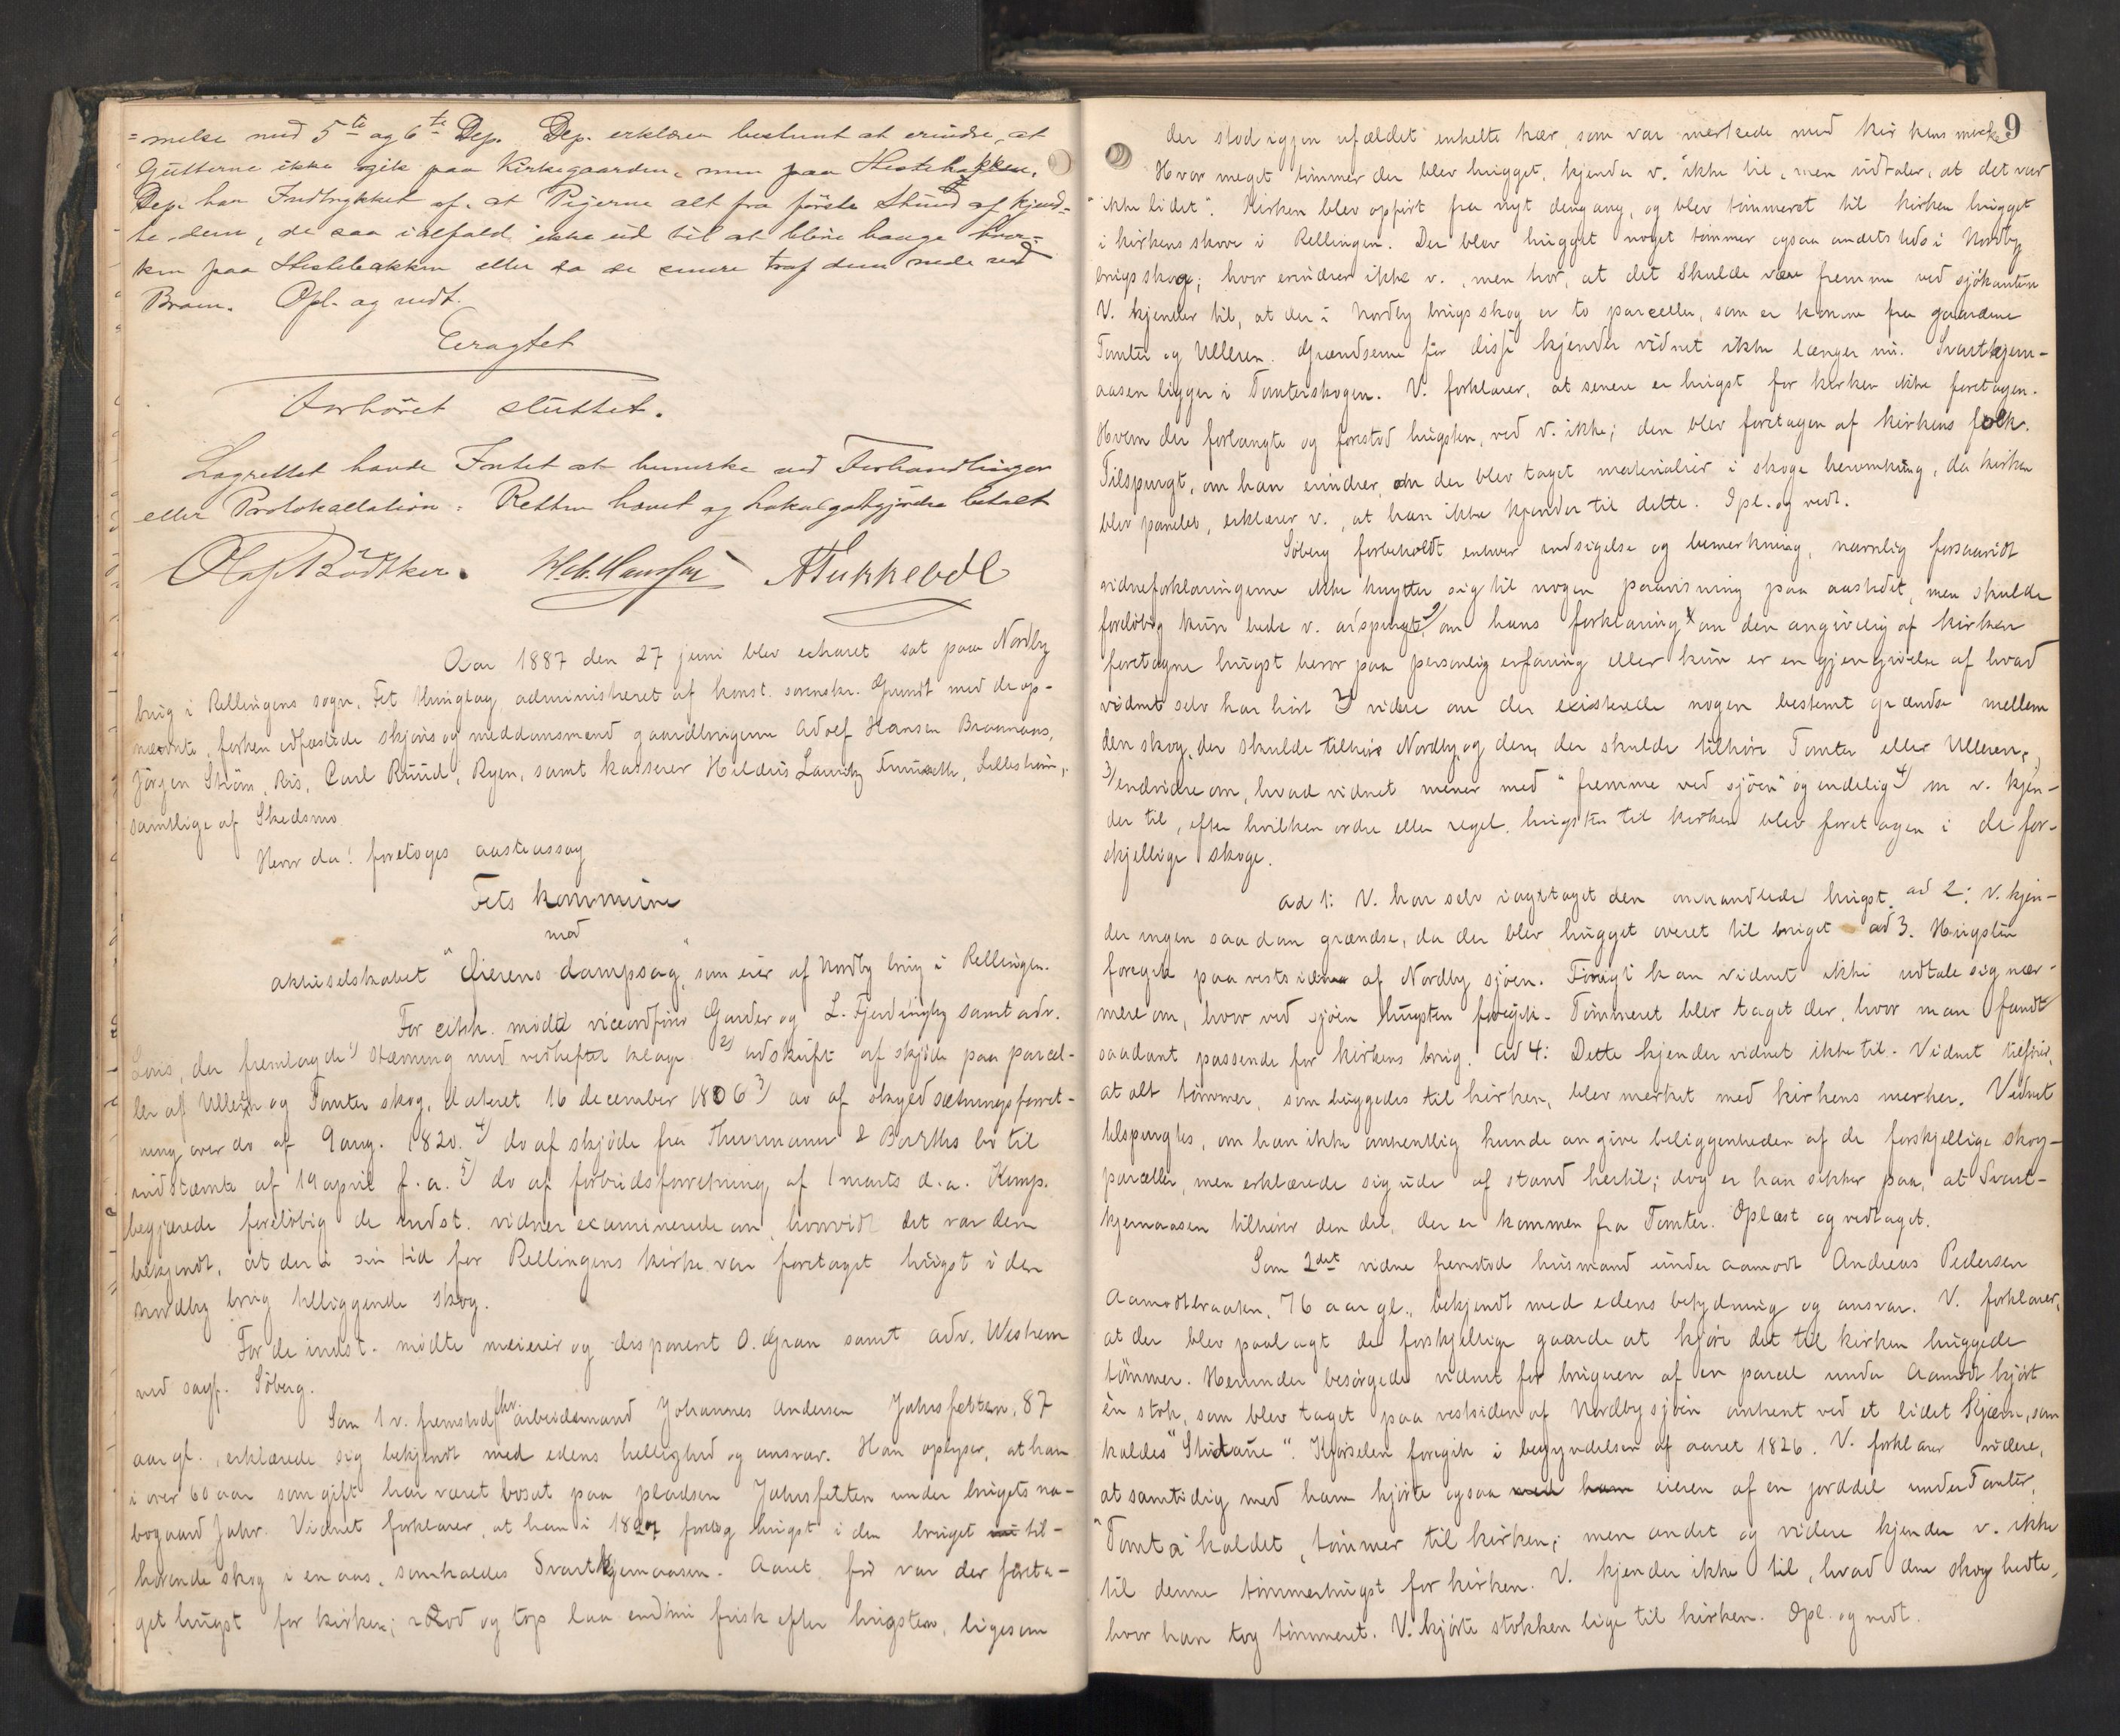 =melse med 5te og 6te Dep. Dep. erklærer bestemt at erindre, at
Gutterne ikke gik paa Kirkegaarden, men paa Hestebakken.
Dep. har Indtrykket af, at Pigerne alt fra første Stund af kjend=
te dem, de saa ialfald ikke ud til at blive bange hver=
ken paa Hestebakken eller da de senere traf dem nede ved
Broen. Opl. og vedt.
Eragtet
Forhöret sluttet.
Lagrettet havde Intet at bemerke ved Forhandlingen
eller Protokollationen. Retten hævet og Lokalgodtgjörelse betalt
Olaf Bödtker.
Aar 1887 den 27 juni blev extraret sat paa Nordby
brug i Rellingens sogn, Fet thinglag administreret af konst. sorenskr. Grundt med de op-
nævnte, forhen edfæstede skjøns og meddomsmænd gaardbrugerne Adolf Hansen Braanaas,
Jörgen Ström, Ris, Carl Ruud, Ryen, samt kasserer Lilleström,
samtlige af Skedsmo
Hvor da! foretoges aasteassag
Fets kommune
mod
aktieselskabet "Öierens dampsag" som eier af Nordby brug i Rellingen.
For citk. mödte viceordförer Garder og L. Fjerdingby samt adv.
der fremlagde 1) stævning med vedheftet klage 2) udskrift af skjöde paa parcel-
ler af Ulleren og Tomter skog, dateret 16 december 1806 3) do af skyldsætningsforret-
ning over do af 9 aug. 1820. 4) do af skjöde fra Thurmann & bo til
indstæmte af 19 april f.a. 5) do af forbudsforretning af 1 marts d.a. Komp.
begjærede forelöbig de indst. vidner examinerede om, hvorvidt det var dem
bekjendt, at der i sin tid for Rellingens kirke var foretaget hugst i den
Nordby brug tilliggende skog.
For de indst. mödte meieier og disponent O. Gran samt adv.
ved sagf. Söberg.
Som 1 v. fremstod fhv. arbeidsmand Johannes Andersen Jahrsfetten, 87
aar gl., erklærede sig bekjendt med edens hellighed og ansvar. Han oplyser, at han
i over 60 aar som gift har været bosat paa pladsen Jahrsfetten under brugets na-
bogaard Jahr. Vidnet forklarer, at han i 1827 foretog hugst i den bruget nu til-
hörende skog i en aas, som kaldes Svartkjernaasen. Aaret för var der foreta-
get hugst for kirken; rod og top laa endnu frisk efter hugsten, ligesom
9
der stod igjen ufældet enkelte trær, som var merkede med kirkens merke
Hvor meget tömmer der blev hugget, kjender v. ikke til, men udtaler, at det var
"ikke lidet". Kirken blev opfört fra nyt dengang, og blev tömmeret til kirken hugget
i kirkens skove i Rellingen. Der blev hugget noget tömmer ogsaa andetsteds i Nordby
brugs skog; hvor erindrer ikke v., men tror, at det skulde være fremme ved sjökanten
V. kjender til, at der i Nordby brugs skog er to parceller, som er komne fra gaardene
Tomter og Ulleren. Grændserne for disse kjender vidnet ikke længer nu. Svartkjern-
aasen ligger i Tomterskogen. V. forklarer, at senere er hugst for kirken ikke foretagen.
Hvem der forlangte og forestod hugsten, ved v. ikke; den blev foretagen af kirkens folk.
Tilspurgt, om han erindrer, om der blev taget materialier i skoge heromkring, da kirken
blev panelet, erklærer v., at han ikke kjender til dette. Opl. og vedt.
Söberg forbeholdt enhver indsigelse og bemerkning, navnlig forsaavidt
vidneforklaringerne ikke knytter sig til nogen paavisning paa aastedet, men skulde
forelöbig kun bede v. afspurgt 1) om hans forklaring om den angivelig af kirken
foretagne hugst beror paa personlig erfaring eller kun er en gjengivelse af hvad
vidnet selv har hört 2) videre om der existerede nogen bestemt grændse mellem
den skog, der skulde tilhöre Nordby, og den, der skulde tilhöre Tomter eller Ulleren,
3) endvidere om, hvad vidnet mener med "fremme ved sjöen" og endelig 4) om v. kjen-
der til, efter hvilken ordre eller regel hugsten til kirken blev foretagen i de for-
skjellige skoge.
Ad 1: V. har selv iagttaget den omhandlede hugst. ad 2: V. kjen-
der ingen saadan grændse, da der blev hugget overet til bruget ad 3. Hugsten
foregik paa vestsiden af Nordby sjöen. Forögt kan vidnet ikke udtale sig nær-
mere om, hvor ved sjöen hugsten foregik. Tömmeret blev taget der, hvor man fandt
saadant passende for kirkens brug. Ad 4: Dette kjender vidnet ikke til. Vidnet tilföier,
at alt tömmer, som huggedes til kirken, blev merket med kirkens merker. Vidnet
tilspurgtes, om han ikke omtrentlig kunde angive beliggenheden af de forskjellige skog-
parceller, men erklærede sig ude af stand hertil; dog er han sikker paa, at Svart-
kjernaasen tilhörer den del, der er kommen fra Tomter. Oplæst og vedtaget.
Som 2det vidne fremstod husmand under Aamodt Andreas Pedersen
Aamodtbraaten, 76 aar gl., bekjendt med edens betydning og ansvar. V. forklarer,
at der blev paalagt de forskjellige gaarde at kjöre det til kirken huggede
tömmer. Herunder besörgede vidnet for brugeren af en parcel under Aamodt kjört
èn stok, som blev taget paa vestsiden af Nordbysjöen omtrent ved et lidet kjærn, som
kaldes Kjörselen foregik i begyndelsen af aaret 1826. V. forklarer videre,
at samtidig med ham kjörte ogsaa med ham eieren af en jorddel under Tomter,
"Tomta" kaldet, tömmer til kirken; men andet og videre kjender v. ikke
til denne tömmerhugst for kirken. V. kjender ikke til, hvad den skog hedte,
hvor han tog tömmeret. V. kjörte stokken lige til kirken. Opl. og vedt.